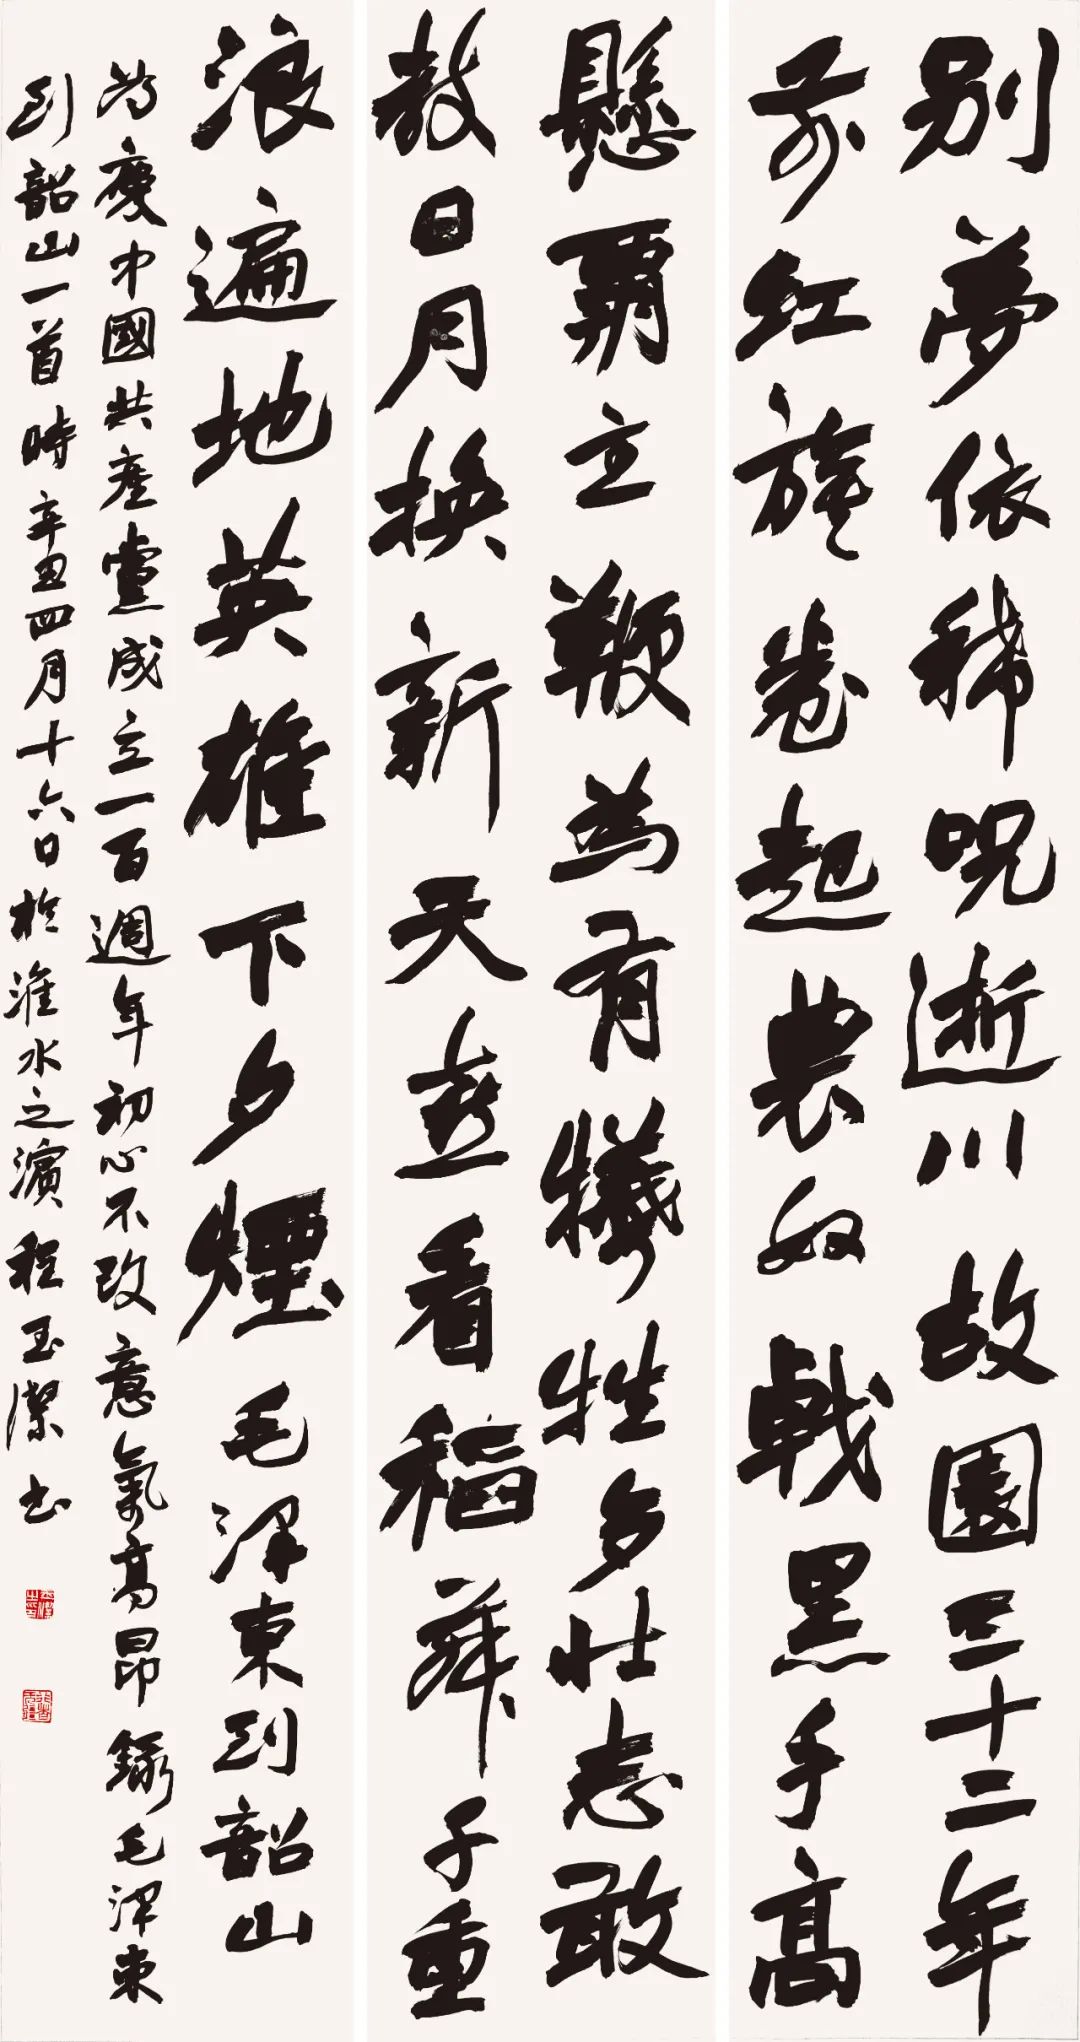 别夢依稀呪逝川故園三十二年
前红旗卷起農奴戟黑手高
懸霸主鞭為有犧牲多壮志敢
教日月换新天喜看稻菽千重
浪遍地英雄下夕煙毛澤東到韶山
為慶中國共產黨成立一百週年初心不改意氣高昂録毛澤東
到韶山一首時辛丑四月十六日於淮水之濱程玉潔书